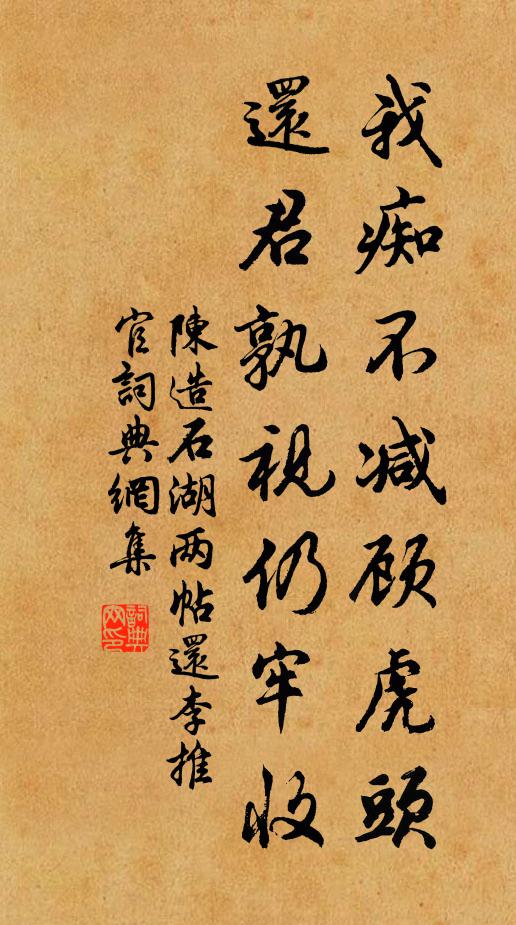 我痴不减顾虎頭
還君孰視仍牢收
陳造石湖两帖還李推
官詞典網集
詞典网印